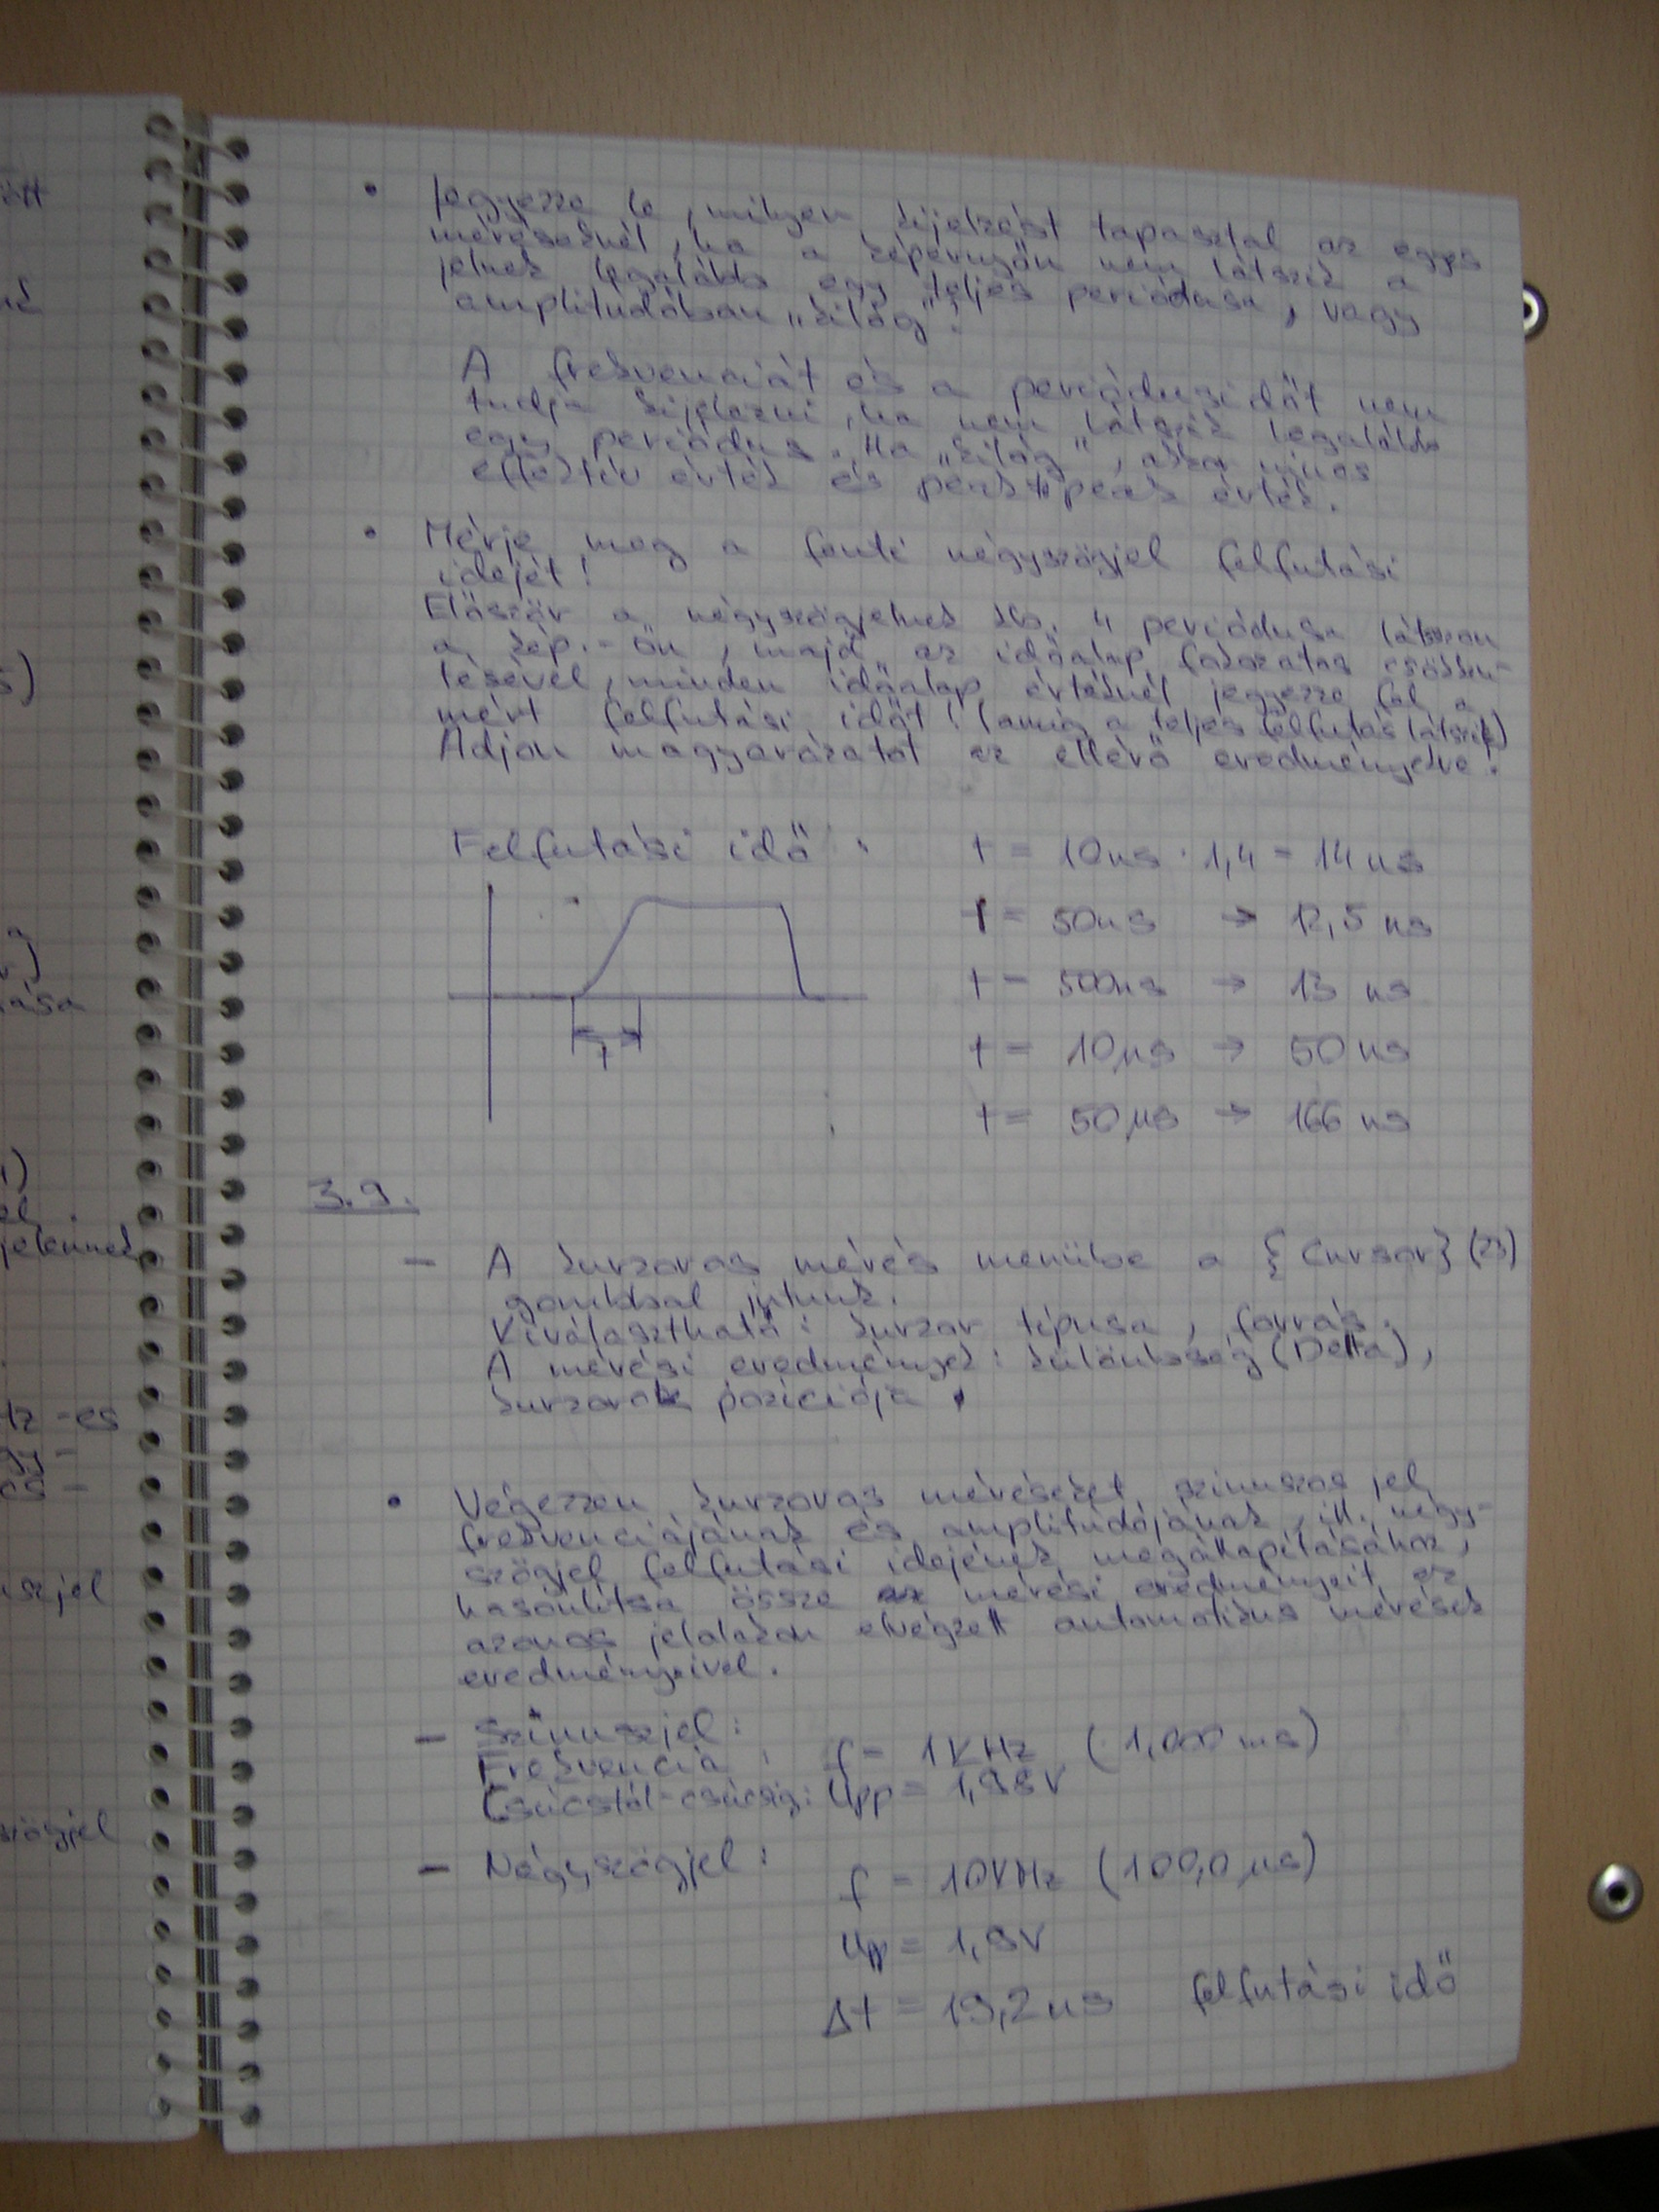 ött
Jegyezze le, milyen kijelzést tapasztal az egyes
méréseknél, ha a képernyőn nem látszik a
jelnek legalább egy teljes periódusa, vagy
amplitudóban „kilóg".
A frekvenciát és a periódusidőt nem
tudja kijelezni, ha nem látszik legalább
egy periódus. Ha „kilóg", akkor nincs
effektív érték és peak to peak érték.
• Mérje meg a fenti négyszögjel felfutási
idejét!
Először a négyszögjelnek kb. 4 periódusa látsszon
a kép.-őn, majd az időalap fokozatos csökken-
tésével, minden időalap értéknél jegyezze fel a
mért felfutási időt! (amíg a teljes felfutás látszik)
Adjon magyarázatot az eltérő eredményekre!
Felfutási idő :
t = 10ns · 1,4 = 14 ns
t = 50ns → 12,5 ns
t = 500ns → 13 ns
t = 10µs → 50 ns
t = 50µs → 166 ns
t
3.9.
- A kurzoros mérés menübe a {Cursor} (23)
gombbal jutunk.
Kiválasztható: kurzor típusa, forrás.
A mérési eredmények: különbség (Delta),
kurzorok pozíciója.
• Végezzen kurzoros méréseket szinuszos jel
frekvenciájának és amplitúdójának, ill. négy-
szögjel felfutási idejének megállapításához,
hasonlítsa össze mérési eredményeit az
azonos jelalakon elvégzett automatikus mérések
eredményeivel.
- Szinuszjel:
Frekvencia : f = 1KHz (1,000 ms)
Csúcstól-csúcsig: Upp = 1,98V
- Négyszögjel: f = 10KHz (100,0 µs)
Upp = 1,9V
Δt = 19,2 ns felfutási idő
jelennek
Hz -es
uszjel
szögjel